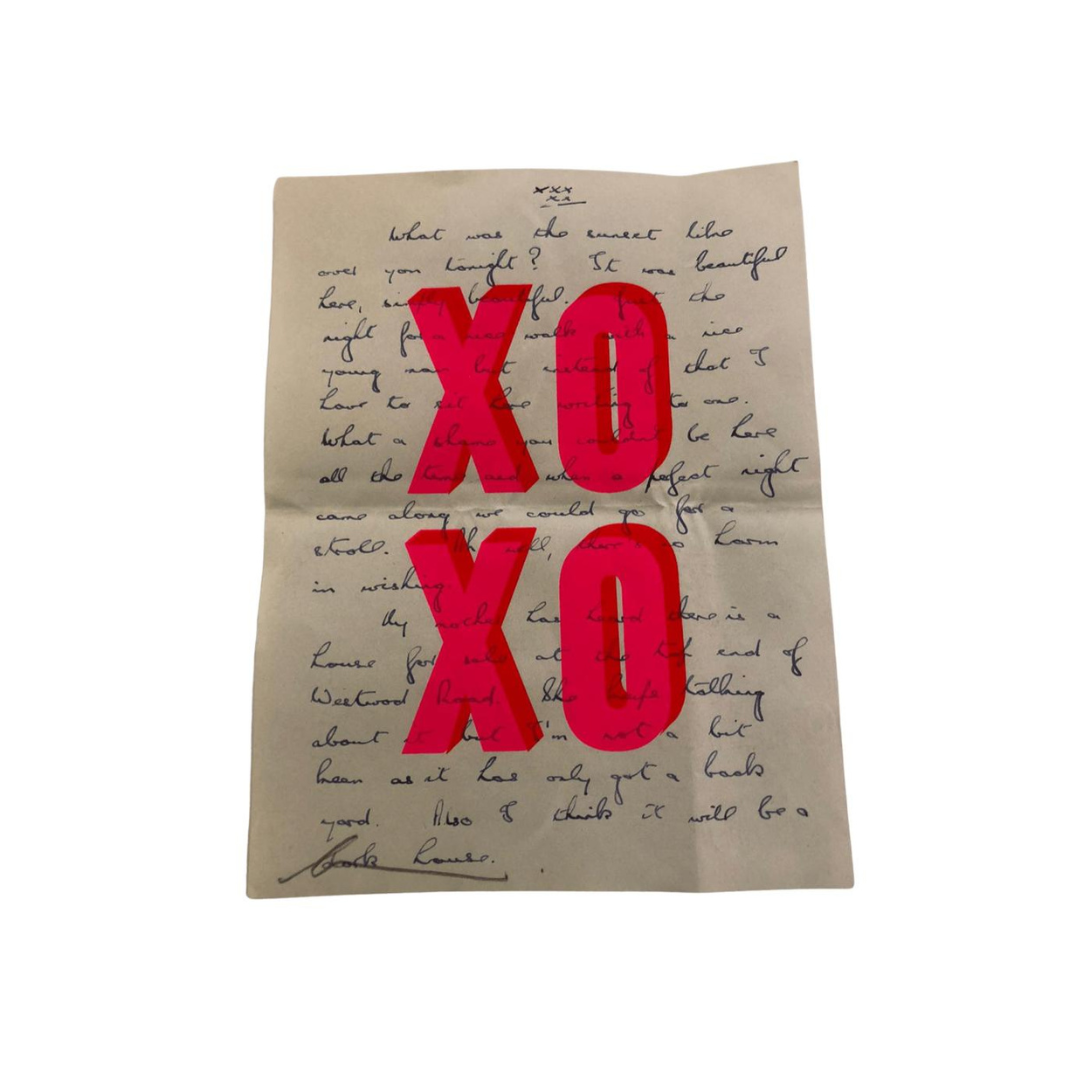 xxx
xx
What was the sunset like
over you tonight? It was beautiful
here, simply beautiful. Just the
right for a nice walk with a nice
young man but instead of that I
have to sit here writing to one.
What a shame you couldn't be here
all the time and when a perfect night
came along we could go for a
stroll. Ah well, there's no harm
in wishing.
My mother has heard there is a
house for sale at the top end of
Westwood Road. She keeps talking
about it but I'm not a bit
keen as it has only got a back
yard. Also I think it will be a
house.
XO
XO